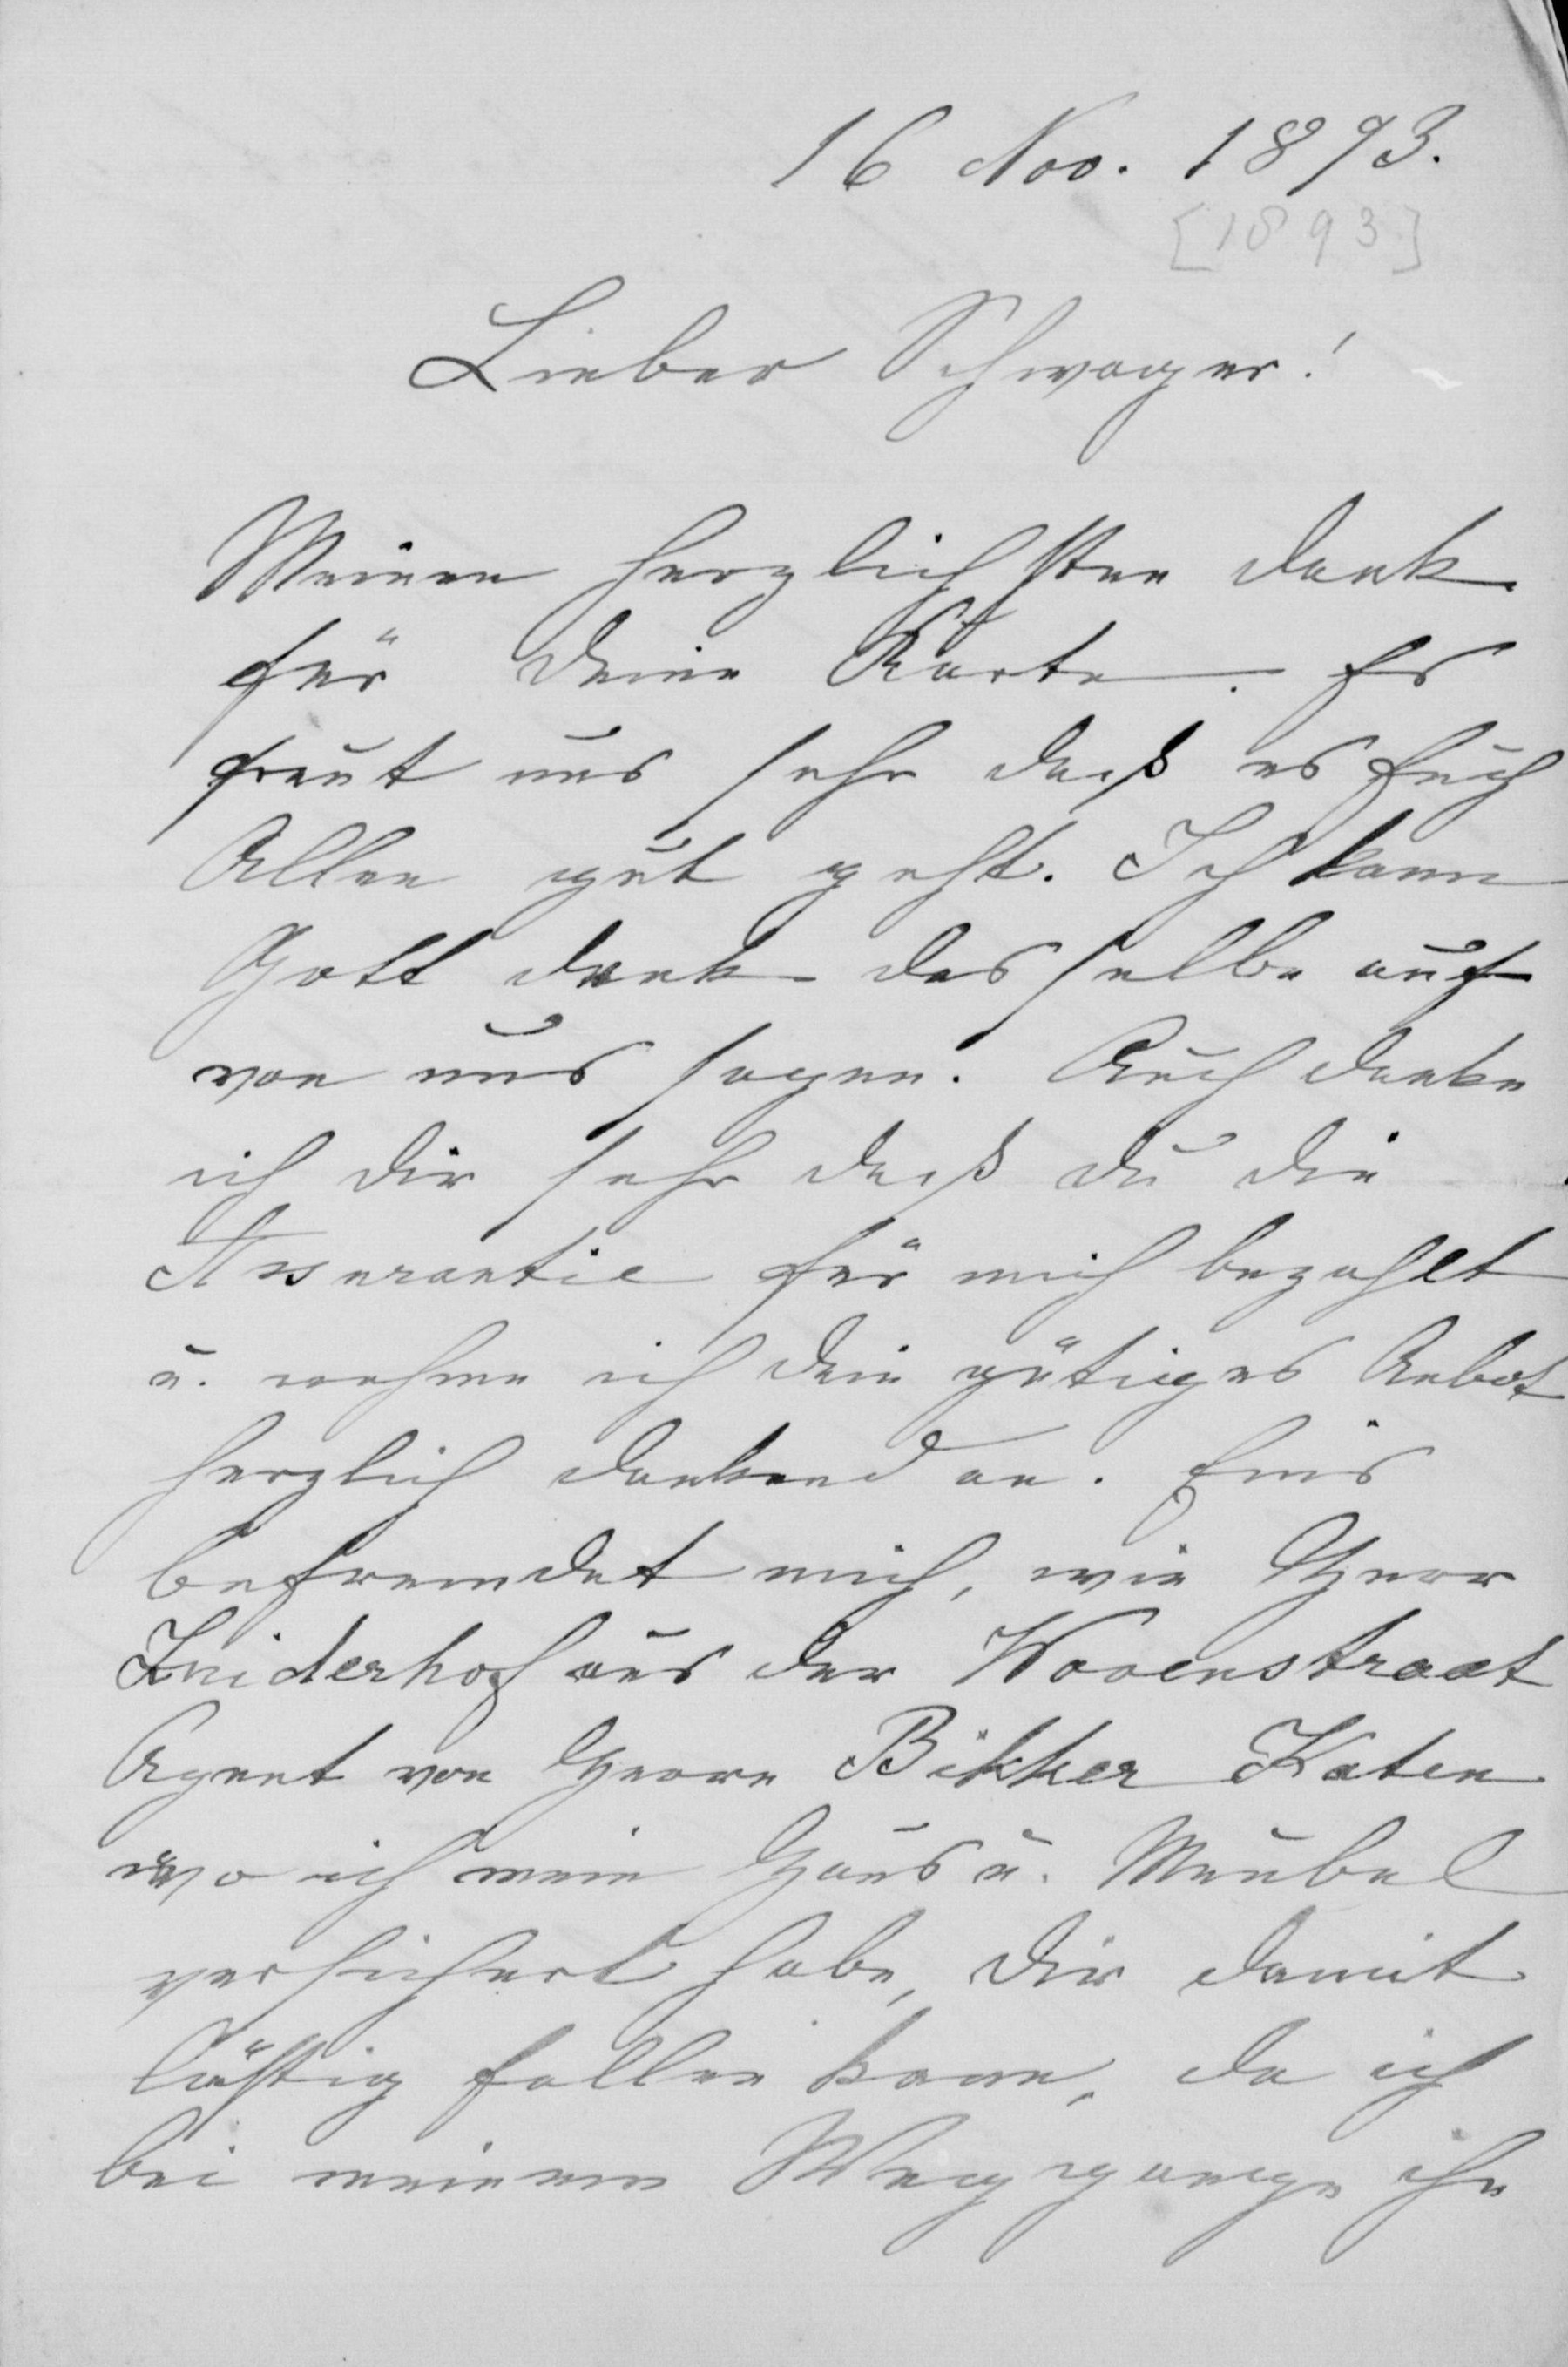 16 Nov. 1893.
[1893]
Lieber Schwager!
Meinen herzlichsten Dank
für Deine Karte. Es
freut uns sehr daß es Euch
Allen gut geht. Ich kann
Gott Dank dasselbe auch
von uns sagen. Auch danke
ich Dir sehr daß Du die
Assurantie für mich bezahlt
u. nehme ich Dein gütiges Anbot
herzlich dankend an. Eins
befremdet mich, wie Herr
Zuiderhof aus der
Agent von Herrn Bikker Katen
wo ich mein Haus u. Meubel
versichert habe, Dir damit
lästig fallen kann, da ich
bei meinem Weggange ihn